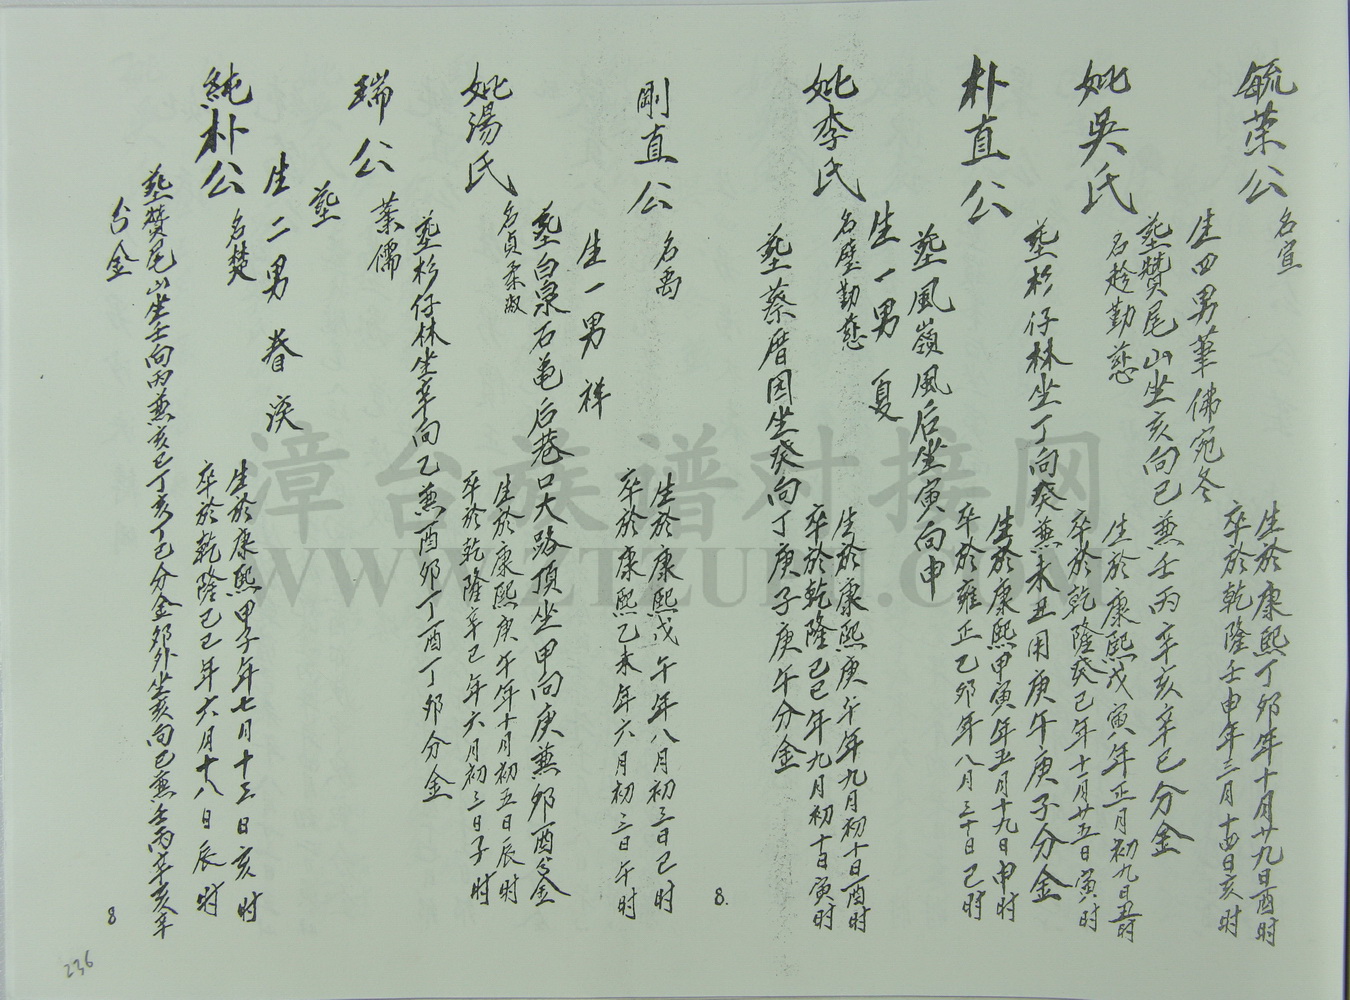 毓荣公 名宣
生於康熙丁卯年十月廿九日酉时
卒於乾隆壬申年三月十四日亥时
生四男 华佛宛冬
塟赞尾山坐亥向巳兼壬丙辛亥辛巳分金
妣吳氏 名趁勤慈
生於康熙戊寅年正月初九日丑时
卒於乾隆癸巳年十一月廿五日寅时
塟杉仔林坐丁向癸兼未丑用庚午庚子分金
朴直公
生於康熙甲寅年五月十九日申时
卒於雍正乙卯年八月三十日巳时
塟風嶺風后坐寅向申
生一男 夏
妣李氏 名璧勤慈
生於康熙庚午年九月初十日酉时
卒於乾隆己巳年九月初十日寅时
塟蔡厝因坐癸向丁庚子庚午分金
8.
剛直公 名禹
生於康熙戊午年八月初三日巳时
卒於康熙乙未年六月初三日午时
生一男 祥
塟白泉石龟后巷口大路頂坐甲向庚兼卯酉分金
妣湯氏 名貞柔淑
生於康熙庚午年十月初五日辰时
卒於乾隆辛巳年六月初三日子时
塟杉仔林坐辛向乙兼酉卯丁酉丁卯分金
瑞公 業儒
塟
生二男 眷 淡
純朴公 名楚
生於康熙甲子年七月十三日亥时
卒於乾隆己巳年六月十八日辰时
塟赞尾山坐壬向丙兼亥巳丁亥丁巳分金郊外坐亥向巳兼壬丙辛亥辛
分金
8
236
漳台族谱对接网
WWW.ZTZUPU.COM